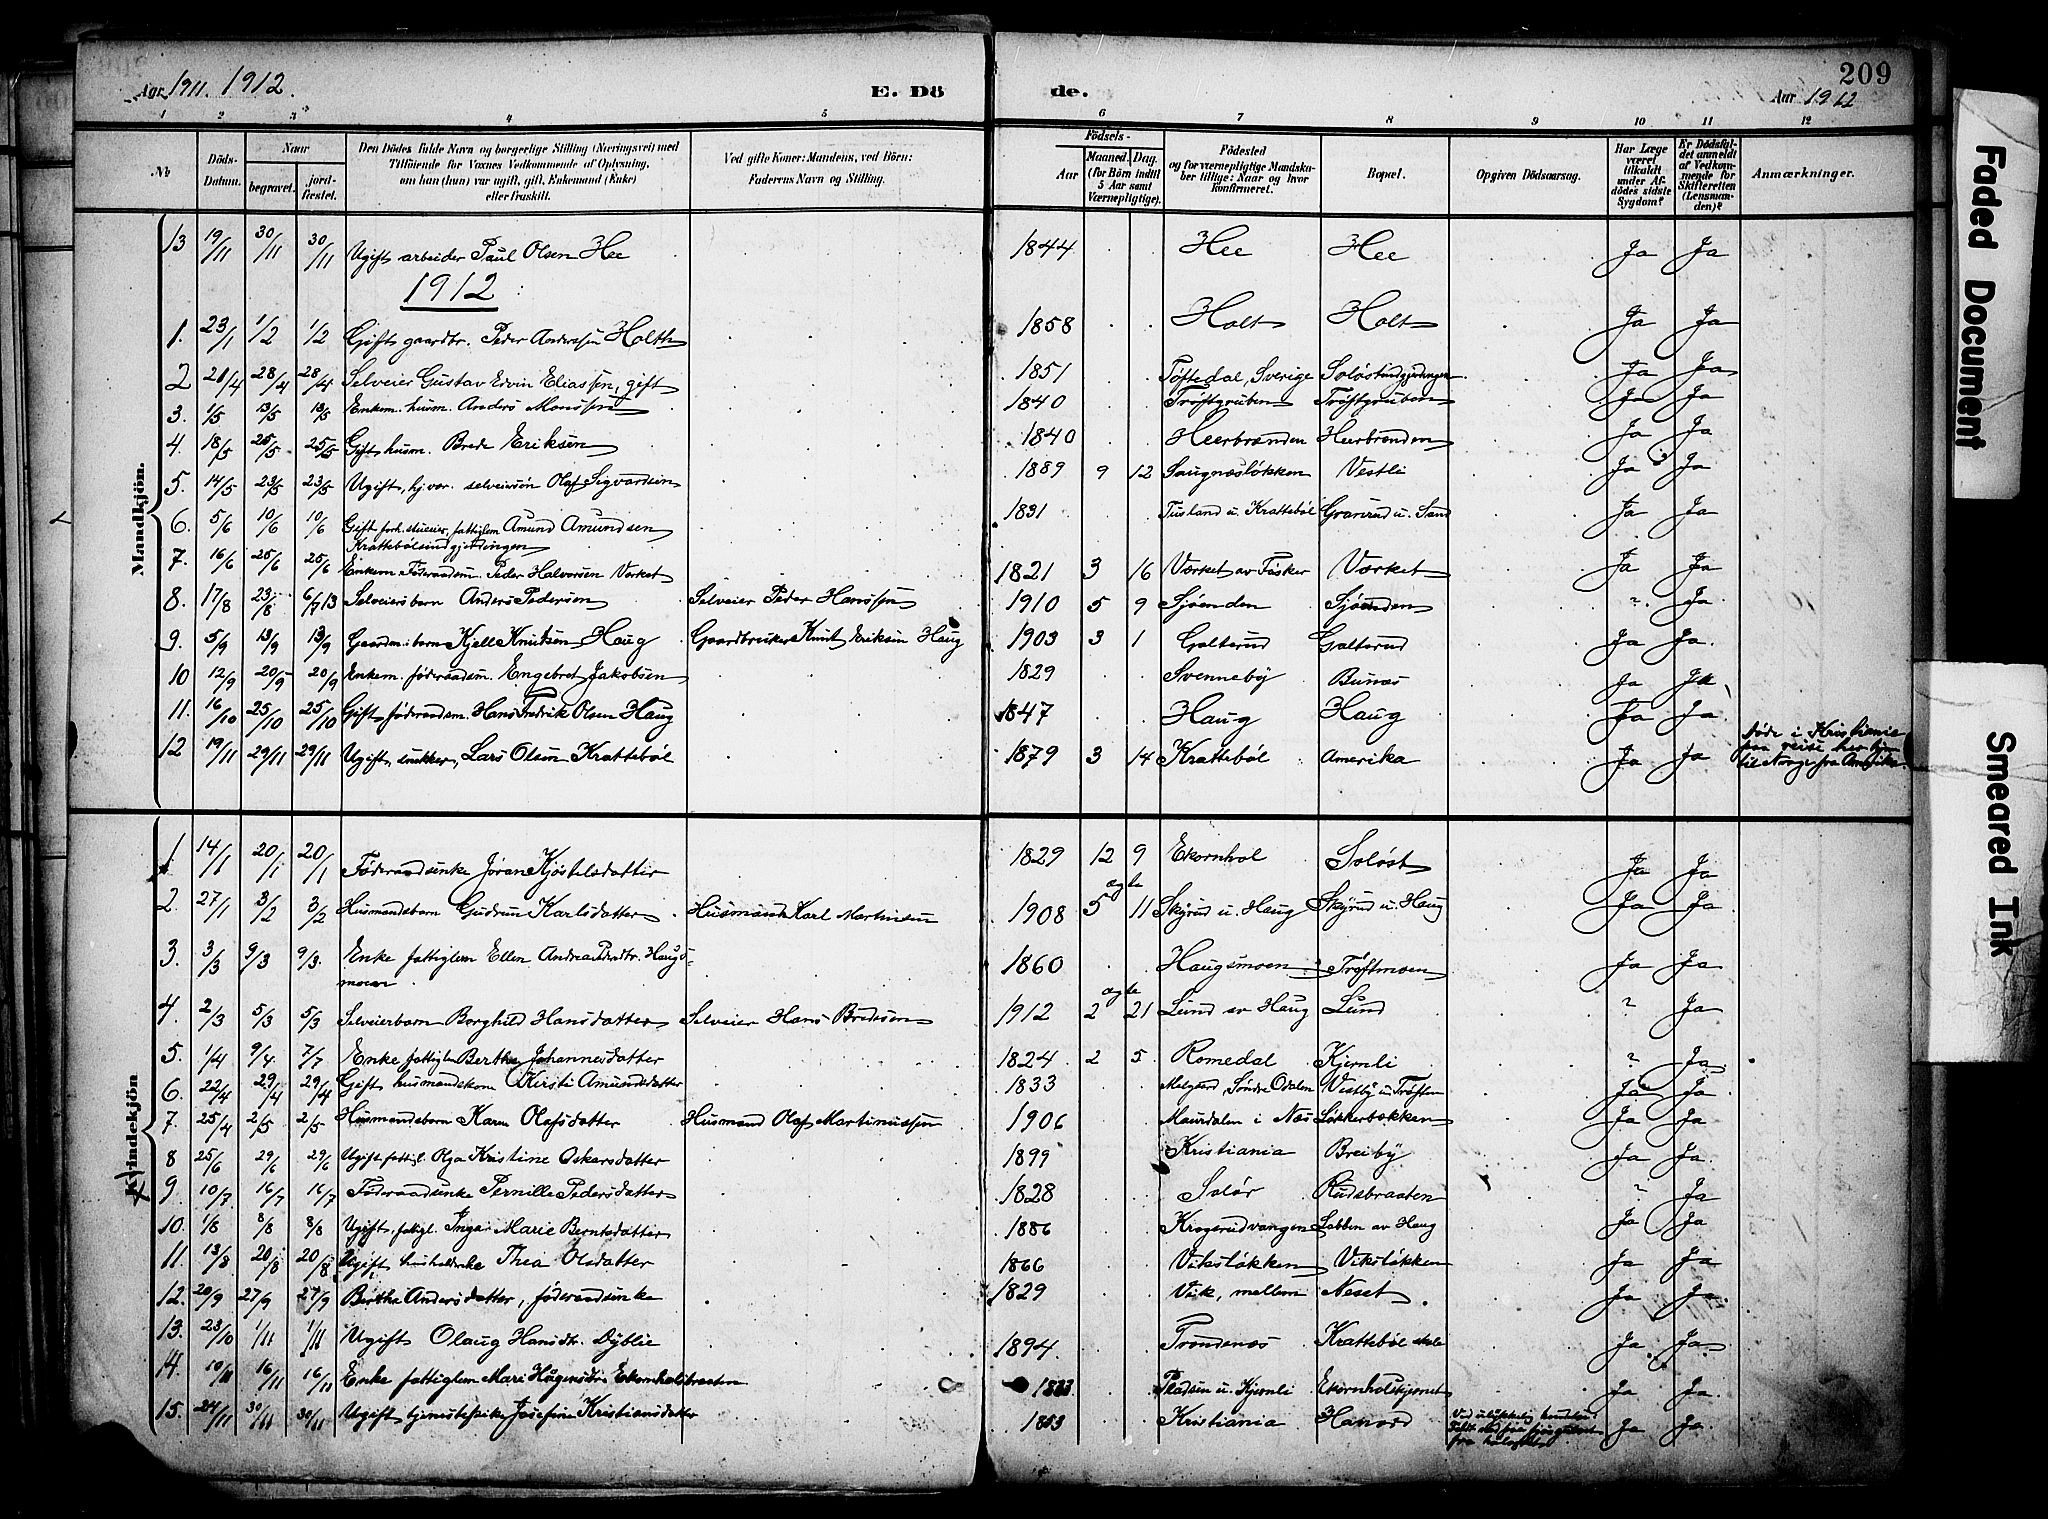 209
Aar 1911. 1912.
E. Dö
de.
Aar 1912
1 2 3 4 5 6 7 8 9 10 11 12
No
Döds-Datum.
Naar
begravet.
jord-fæstet.
Den Dödes fulde Navn og borgerlige Stilling (Næringsvei) med
Tilföiende for Voxnes Vedkommende af Oplysning,
om han (hun) var ugift, gift, Enkemand (Enke)
eller fraskilt.
Ved gifte Koner: Mandens, ved Börn:
Faderens Navn og Stilling.
Födsels-
Aar
Maaned. Dag.
(for Börn indtil
5 Aar samt
Værnepligtige).
Födested
og for værnepligtige Mandska-
ber tillige: Naar og hvor
konfirmeret.
Bopæl.
Opgiven Dödsaarsag.
Har Læge
været
tilkaldt
under Af-
dödes sidste
Sygdom?
Er Dödsfal-
det anmeldt
af Vedkom-
mende for
Skifteretten
(Lensman-
den)?
Anmærkninger.
Mandkjön.
13 19/11 30/11 30/11 Ugift arbeider Paul Olsen Hee 1844 Hee Hee Ja Ja
1912
1. 23/1 1/2 1/2 Gift gaardbr. Peder Anderssen Holth 1858 Holt Holt Ja Ja
2 21/4 28/4 28/4 Selveier Gustav Ervin Eliassen, gift 1851 Töftedal, Sverige Ja Ja
3. 1/5 13/5 13/5 Enkem. husm. Anders Monssen 1840 Tröftgruben Tröftgruben Ja Ja
4. 18/5 25/5 25/5 Gift husm. Brede Eriksen 1840 Heerbranden Heerbranden Ja Ja
5. 14/5 23/5 23/5 Ugift, hj.vær. selveiersön Olaf Sigvardsen 1889 9 12 Saugnæsløkken Vestli Ja Ja
6. 5/6 10/6 10/6 Gift forh. selveier, fattiglem Amund Amundsen 1831 u. Krattebøl u. Sand Ja Ja
Krattebølsindgjerdingen
7. 16/6 25/6 25/6 Enkem Føderaadsm. Peder Halvorsen Værket 1821 3 16 Værket av Fosker Værket Ja Ja
8. 17/8 23/8 6/7 13 Selveiersbarn Anders Pedersen Selveier Peder Hanssen 1910 5 9 Sjøenden Sjøenden ? Ja
9. 5/9 13/9 13/9 Gaardm. barn Kjell Knutsen Haug Gaardbruker Knut Eriksen Haug 1903 3 1 Galterud Galterud Ja Ja
10 12/9 20/9 20/9 Enkem. føderaadsm. Engebret Jakobsen 1829 Svenneby Bunæs Ja Ja
11. 16/10 25/10 25/10 Gift føderaadsm. Hans Fredrik Olsen Haug 1847 Haug Haug Ja Ja
12 19/11 29/11 29/11 Ugift, snekker, Lars Olsen Krattebøl 1879 3 14 Krattebøl Amerika Ja Ja døde i Kristiania
paa reise her hjem
til Norge fra Amerika.
Kvindekjön
1 14/1 20/1 20/1 Føderaadsenke Jøran Kjøstelsdatter 1829 12 9 Ekornhol Soløst Ja Ja
2 27/1 3/2 3/2 Husmandsbarn Gudrun Karlsdatter Husmand Karl Martinsen 1908 ægte 5 11 Skyrud u. Haug Skyrud u. Haug Ja Ja
3. 3/3 9/3 9/3. Enke fattiglem Ellen Andrea Pedrdtr. Haugs-
moen 1860 Haugsmoen Tröftmoen Ja Ja
4. 2/3 5/3 5/3 Selveierbarn Borghild Hansdatter Selveier Hans Bredesen 1912 ægte 2 21 Lund av Haug Lund ? Ja
5. 1/4 9/4 7/7 Enke fattiglem Berthe Johannesdatter 1824 2 5 Romedal Kjernli ? Ja
6. 22/4 29/4 29/4 Gift husmandskone Kirsti Amundsdatter 1833 Melgard, Søndre Odalen Vestby u Trøften Ja Ja
7. 25/4 2/5 2/5 Husmandsbarn Karen Olafsdatter Husmand Olaf Martinussen 1906 Maurdalen i Næs Løkkerbakken Ja Ja
8 25/6 29/6 29/6 Ugift fattigl. Olga Kristine Oskarsdatter 1899 Kristiania Breiby Ja Ja
9 10/7 16/7 16/7 Føderaadsenke Pernille Pedersdatter 1828 Solør Rudsbraaten ? Ja
10. 1/8 8/8 8/8 Ugift, fattigl. Inga Marie Berntsdatter 1886 Krogerudvangen Labben av Haug Ja Ja
11. 13/8 20/8 20/8 Ugift husholderske Thea Olsdatter 1866 Viksløkken Viksløkken Ja Ja
12. 20/9 27/9 27/9 Berthe Andersdatter, føderaadsenke 1829 Vik, mellem Neset Ja Ja
13. 23/10 1/11 1/11 Ugift Olaug Hansdt. Dyblie 1894 Trondenæs Krattebøl skole Ja Ja
14. 10/11 16/11 16/11 Enke fattiglem Mari Hågensdtr Ekornholsbraaten Pladsen u. Kjernli Ekornholskjernet Ja Ja
15. 24/11 30/11 30/11 Ugift tjenestepike Josefine Kristiansdatter 1853 Kristiania Hanord Ved ulykkelig hendelse.
Faldt ned fra
fra Ja Ja
Faded Document
Smeared Ink